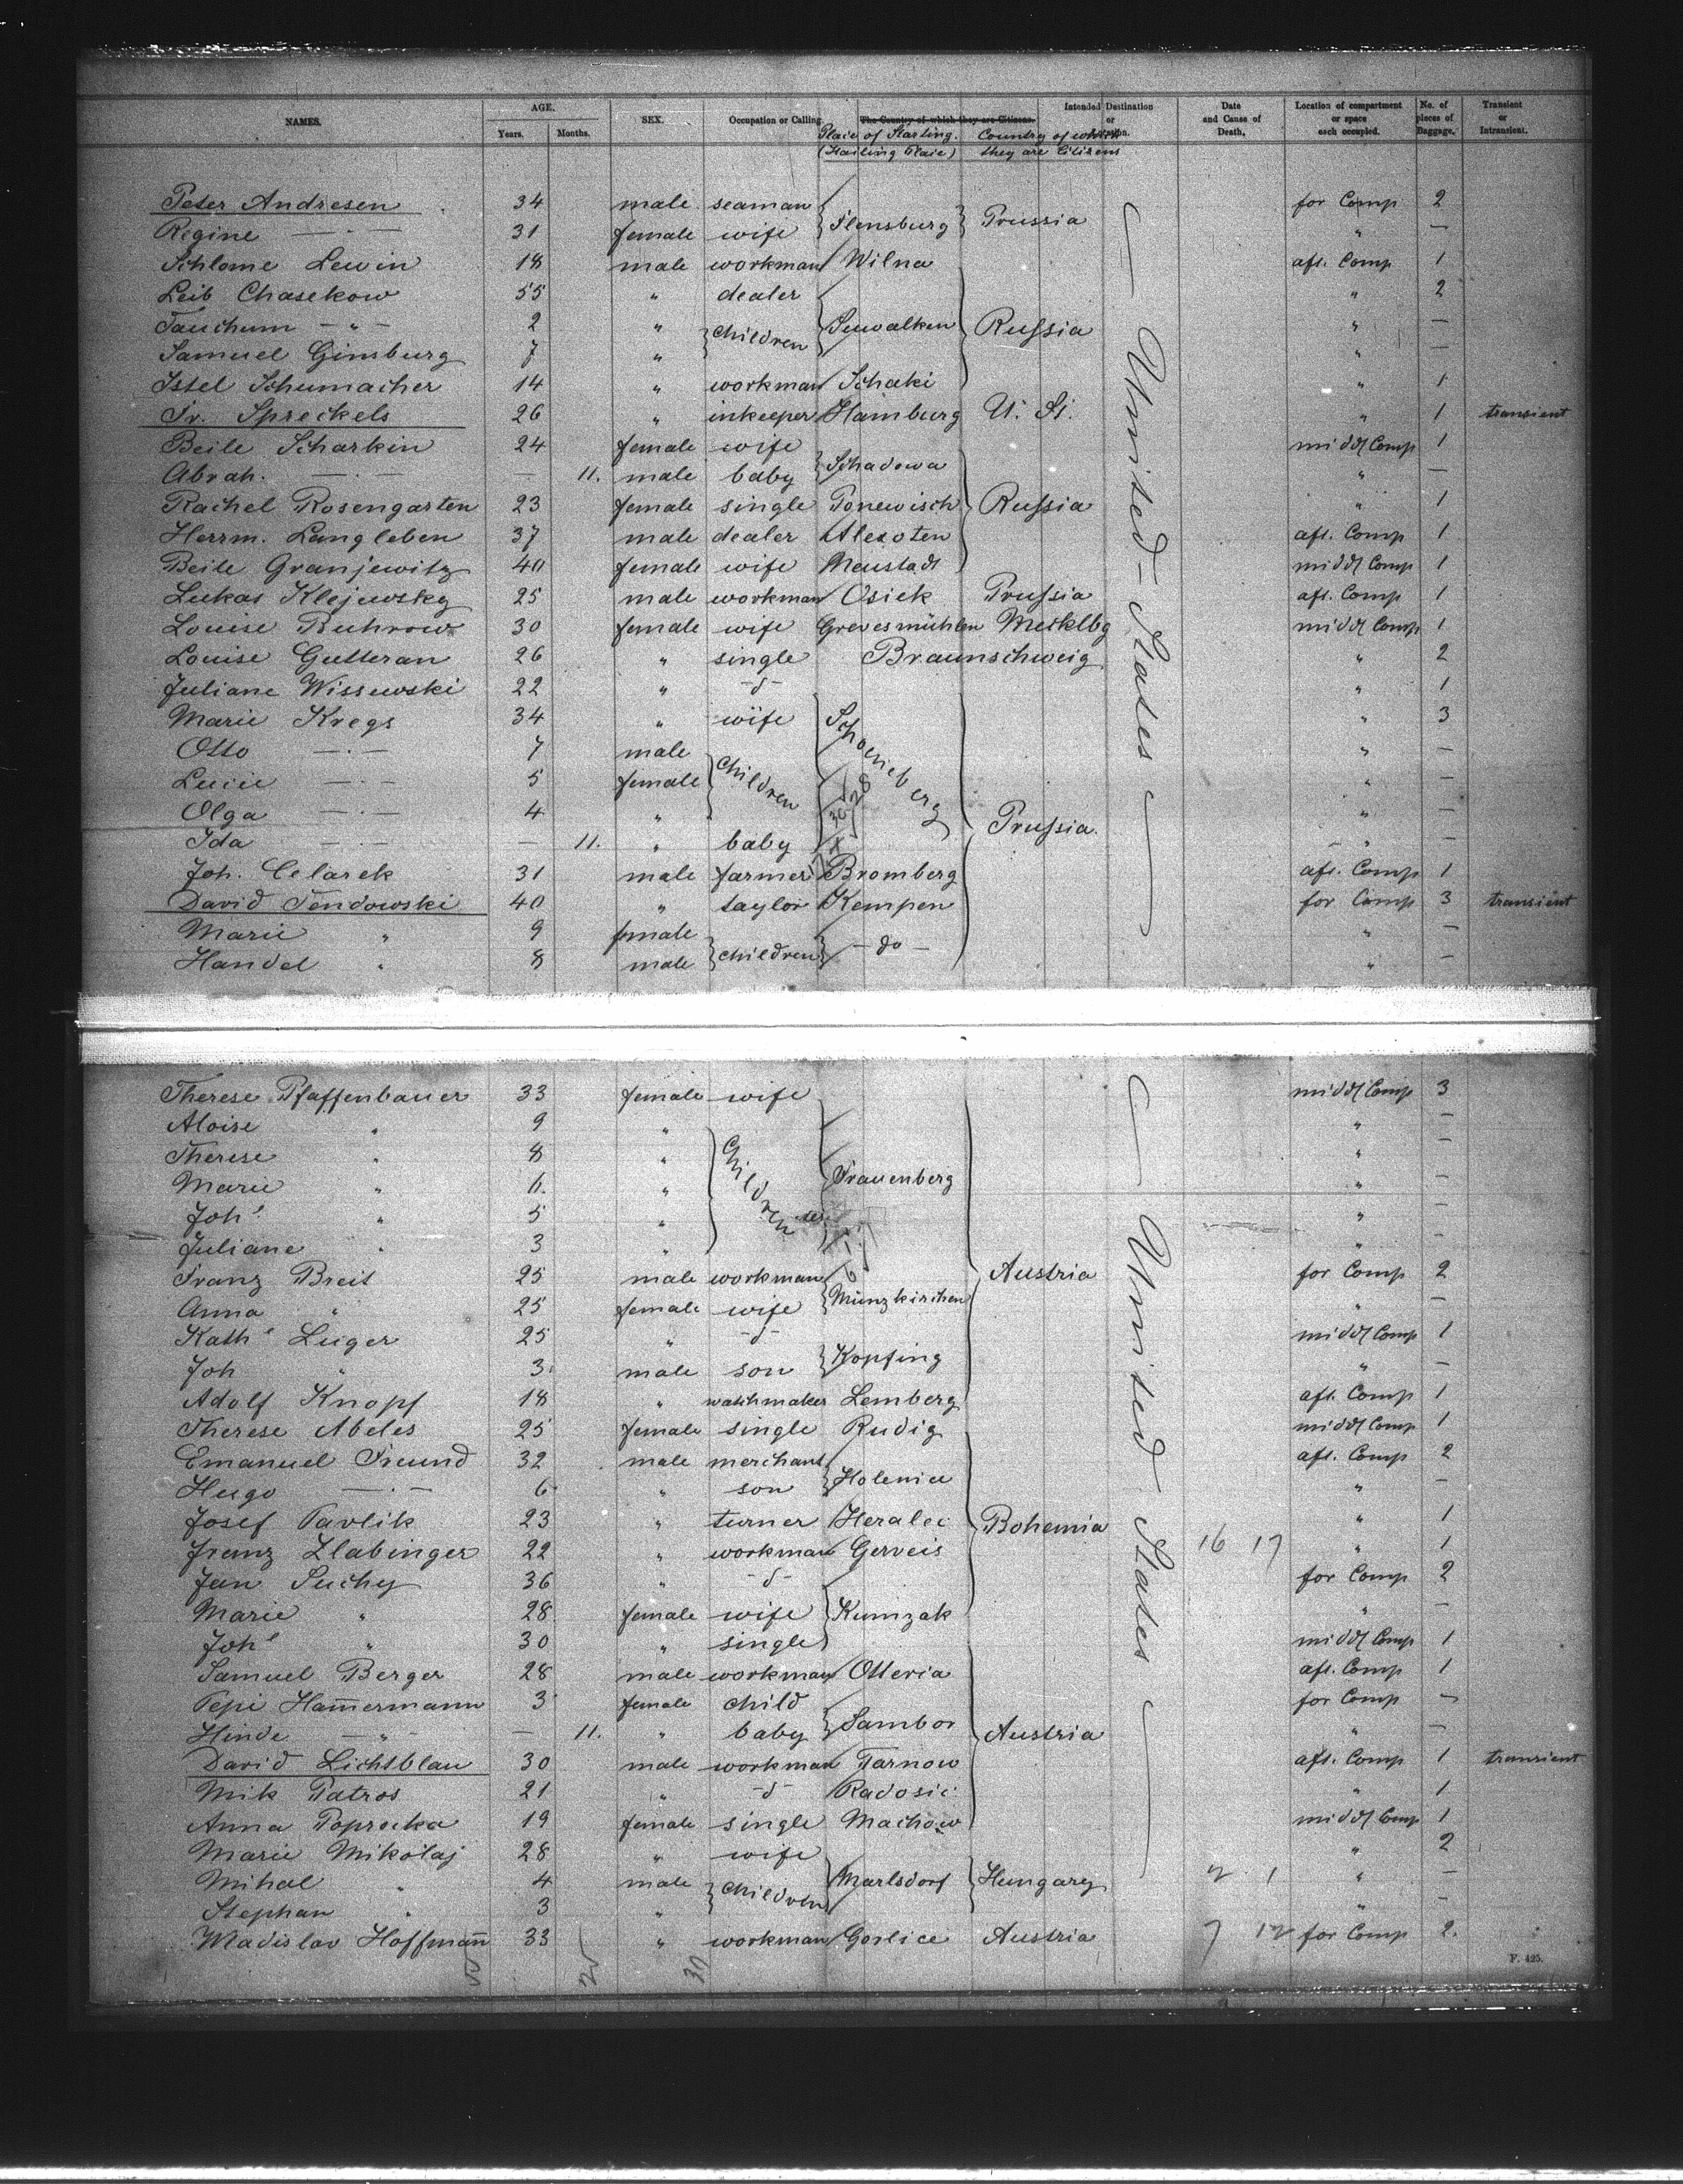 NAMES. AGE. SEX. Occupation or Calling. The Country of which they are Citizens. Intended Destination or Location. Date and Cause of Death. Location of compartment or space each occupied. No. of pieces of Baggage. Transient or Intransient.
Years. Months. Place of Starting. (Hailing Place) Country of which they are Citizens
Peter Andresen 34 male seaman } Flensburg } Prussia for Comp 2
Regine —"— 31 female wife " —
Schlome Lewin 18 male workman Wilna aft. Comp 1
Leib Chasekow 55 " dealer " 2
Tauchum —"— 2 " } children { Suwalken Russia " —
Samuel Gimburg 7 " " —
Istel Schumacher 14 " workman Schaki " 1
Fr. Spreckels 26 " inkeeper Hamburg U. St. " 1 transient
Beile Scharkin 24 female wife middl Comp 1
Abrah. —"— — 11. male baby } Schadowa " —
Rachel Rosengarten 23 female single Ponewisch Russia " 1
Herrm. Langleben 37 male dealer Alexoten aft. Comp 1
Beile Granjewitz 40 female wife Neustadt middl Comp 1
Lukas Klejewsky 25 male workman Osiek Prussia aft. Comp 1
Louise Buhrow 30 female wife Grevesmühlen Mecklbg middl Comp 1
Louise Gutteran 26 " single Braunschweig " 2
Juliane Wissewski 22 " -d- " 1
Marie Kregs 34 " wife Schoeneberg " 3
Otto —"— 7 male " —
Lucie —"— 5 female } children " —
Olga —"— 4 " " —
Prussia.
Ida —"— — 11. " baby " —
Joh. Celarek 31 male farmer Bromberg aft. Comp 1
David Tendowski 40 " taylor Kempen for Comp 3 transient
Marie " 9 female " —
Handel " 8 male } children } — do — " —
United-States
Therese Pfaffenbauer 33 female wife middl Comp 3
Aloise " 9 " " —
Therese " 8 " children " —
Marie " 6. " Frauenberg " —
Joh<sup>e</sup> " 5 " " —
Juliane " 3 " " —
Franz Breit 25 male workman Austria for Comp 2
Anna " 25 female wife } Münzkirchen " —
Kath<sup>e</sup> Luger 25 " -d- middl Comp 1
Joh " 3. male son } Kopfing " —
Adolf Knopf 18 " watchmaker Lemberg aft. Comp 1
Therese Abeles 25 female single Rudig middl Comp 1
Emanuel Freund 32 male merchant aft. Comp 2
Hugo —"— 6 " son } Holenice " —
Josef Pavlik 23 " turner Heralec Bohemia " 1
Franz Zlabinger 22 " workman Gerveis 16 17 " 1
Jan Suchy 36 " -d- for Comp 2
Marie " 28 female wife } Kumzak " —
Joh<sup>e</sup> " 30 " single middl Comp 1
Samuel Berger 28 male workman Otteria aft. Comp 1
Pepi Hamermann 3 female child for Comp —
Hinde —"— — 11. " baby } Sambor Austria " —
David Lichtblau 30 male workman Tarnow aft. Comp 1 transient
Mik Patros 21 " -d- Radosic " 1
Anna Poprocka 19 female single Machow middl Comp 1
Marie Mikolaj 28 " wife " 2
Mihal " 4 male } children } Marlsdorf } Hungary 1 " —
Stephan " 3 " " —
Wladislav Hoffmann 33 " workman Gorlice Austria 7 12 for Comp 2.
United-States
F. 425.